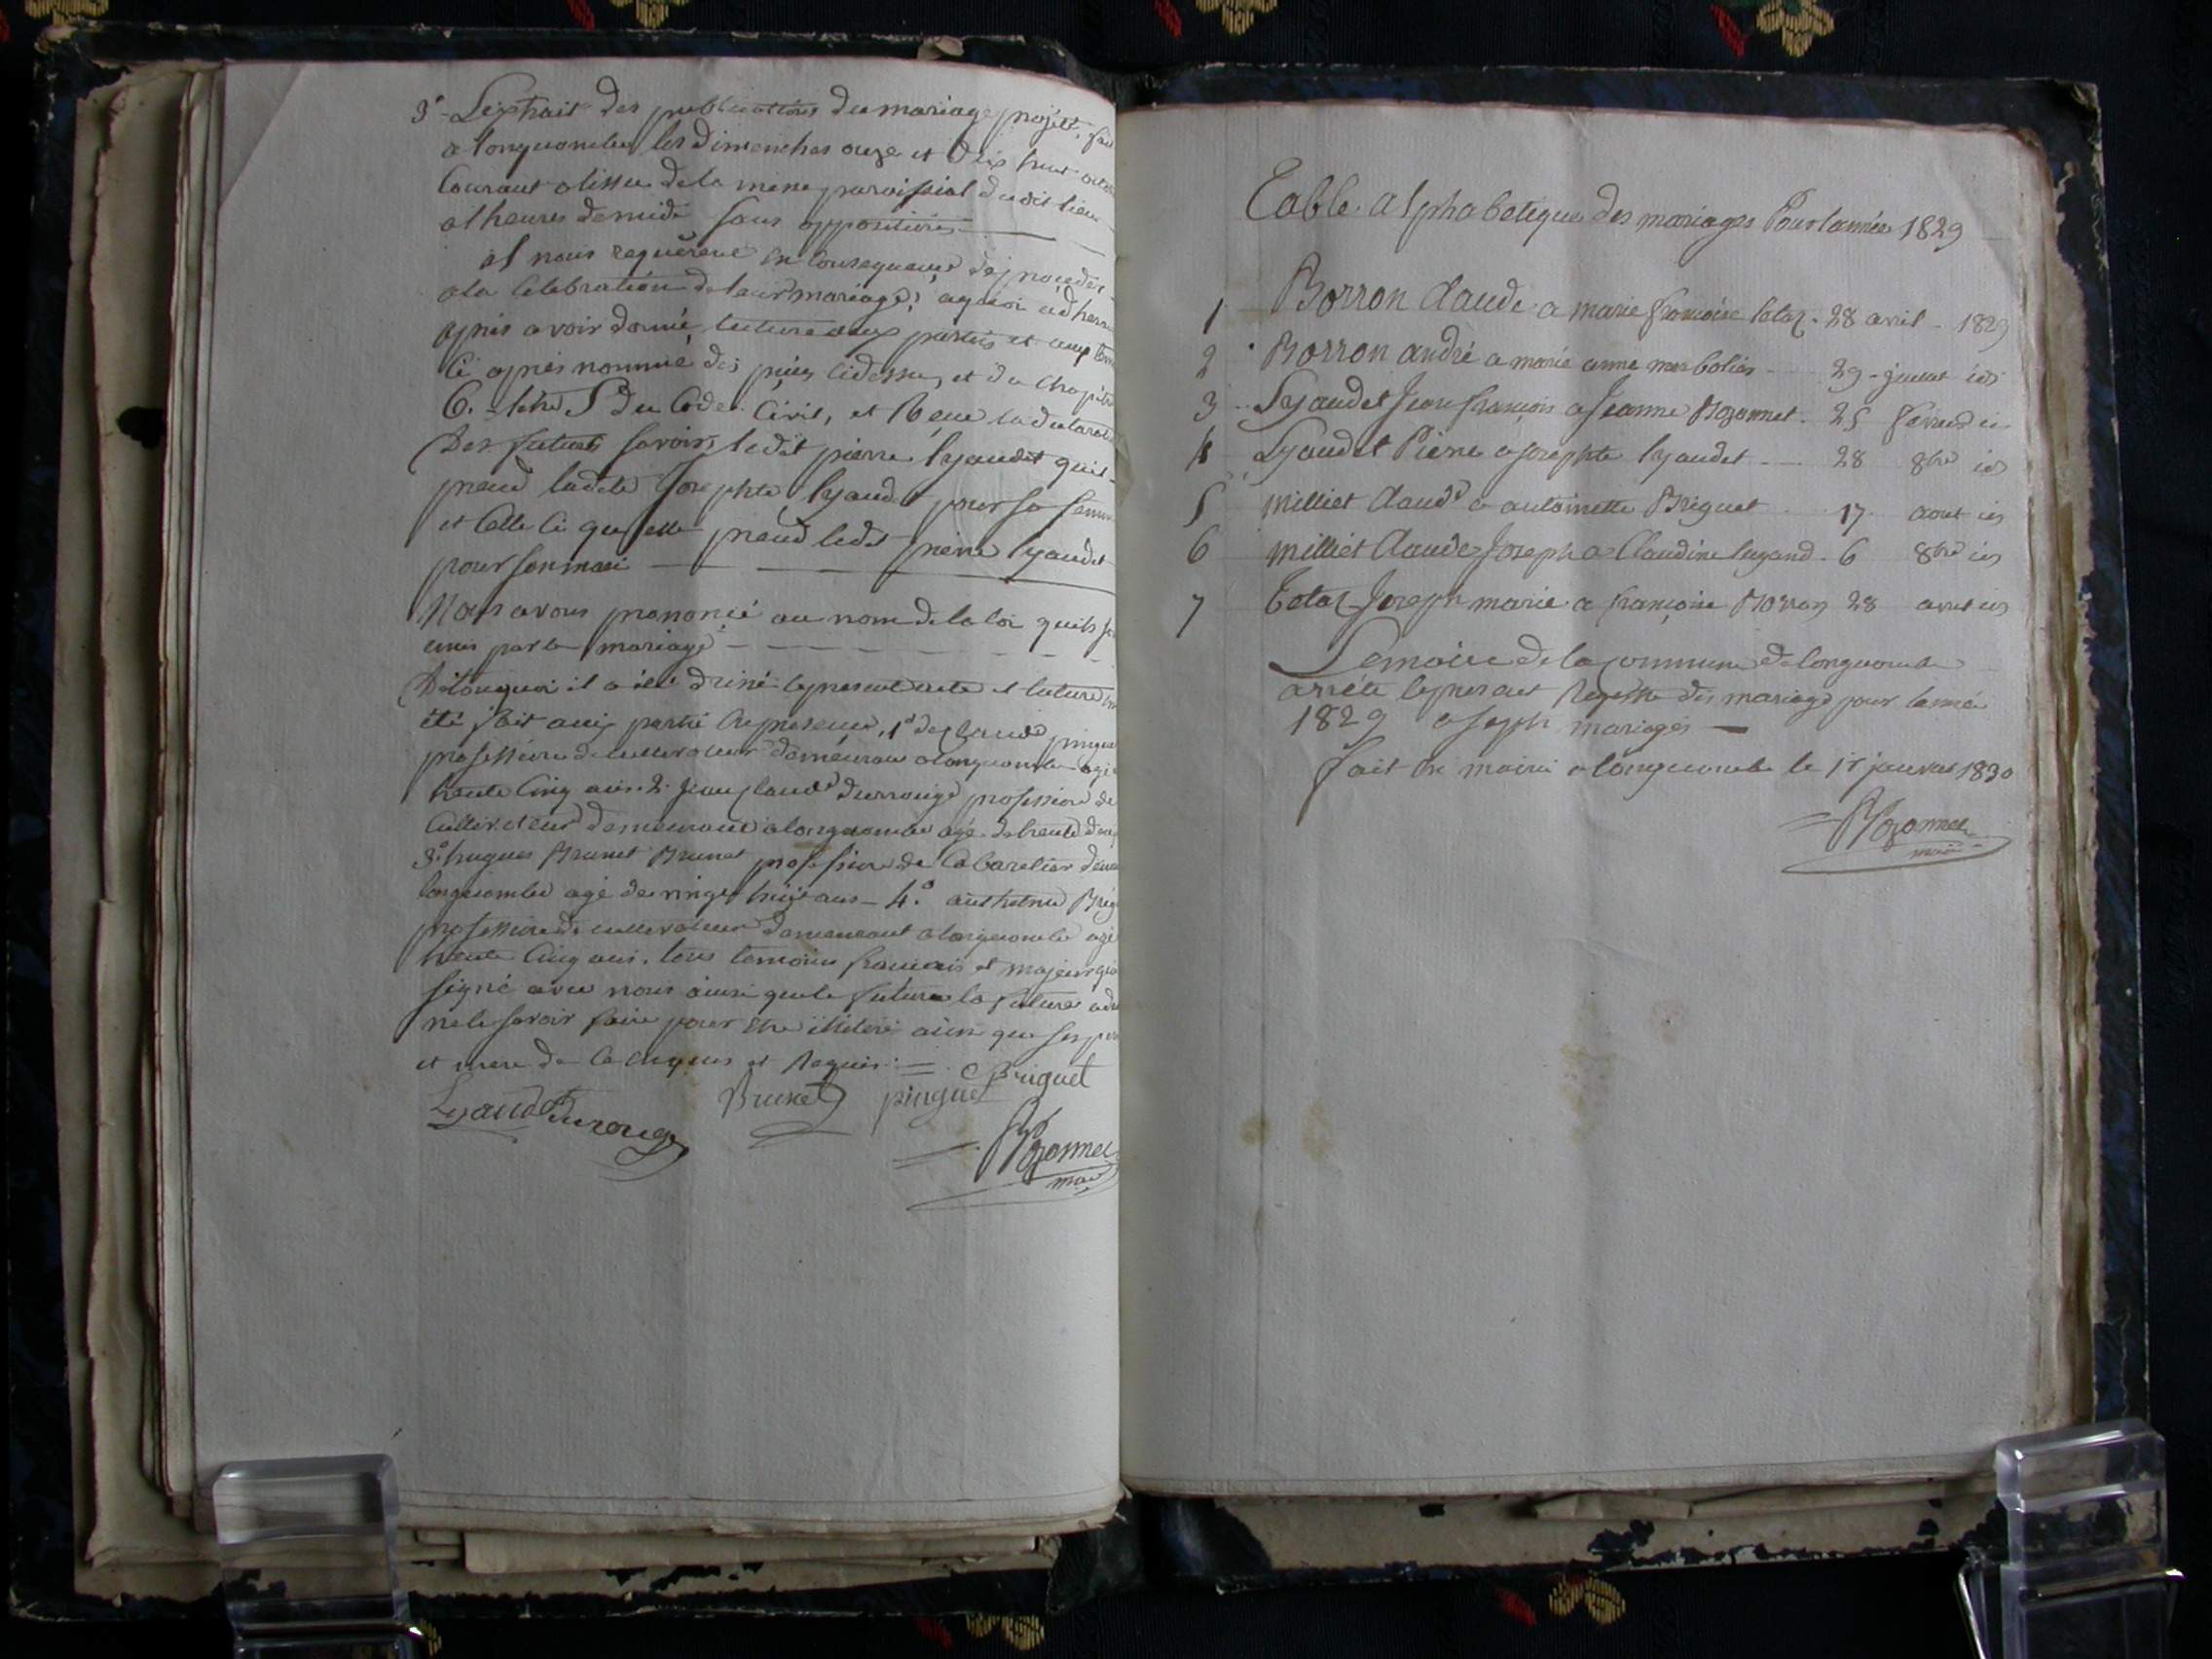 3° Lextrait des publications du mariage projété, fait
a longuombe les dimenches onze et dix huit octobre
Courant alissue dela messe paroissial dudit lieu
at heures demidi sans oppositions
et nous requèrent en Consequence dej proceder
ala Celebration de leur mariage; aquoi adherant
apres avoir donné lecture aux parties et aux
Ci apres nommé des pièces cidessus, et du chapitre
6. titre 5 du Code Civil, et Reçue la declaration
Des futurs savoirs ledit pierre lyaudet quil
prend ladite Josephte lyaudet pour sa femme
et Celle Ci quelle prend ledit pierre lyaudet
pour son mari
Nous avons prononcé au nom de la loi quils sont
unis par le mariage
Delouquoi il a été dréssé le present acte et lecture en
été fait aux partie Enpresence, 1° de Claude pinguet
profession de cultivateur demeurant a longuombe agé
trente Cinq ans. 2. Jean Claude durrouge profession de
Cultivateur demeurant alonguombe agé de trente
3° hugues Brunet Brunet profession de Cabaretier
longuombe agé de vingt huit ans – 4.° anthelme
profession de cultivateur demeurant alonguombe agé
trente Cinq ans. tous temoins francais et majeurs
signé avec nous ainsi que le futur la future
ne le savoir faire pour être illiteré ainsi que ses
et mere de Ce enquis et Requis. =
Briguet
Lyaudet durouge Brunet pinguet
Rozonnet
maire
Table alphabetique des mariages Pour lannée 1829
1 Borron Claude a marie francoise tetaz. 28 avril - 1829
2 Borron andré a marie anne 29 - juillet id
3 Lyaudet Jean francois a Jeanne Rozonnet. 25 id
4 Lyaudet Pierre a Josephte lyaudet 28 8bre id
5 Milliet Claude a antoinette Briguet 17 aout id
6 Milliet Claude Joseph a Claudine lugand. 6 8bre id
7 Tetaz Joseph marie a françoise Borron 28 avril id
Le maire de la Commune de longuombe
arréte le present Registre des mariage pour lannée
1829 a sept mariages —
fait en mairie a longuombe le janvier 1830
Rozonnet
maire